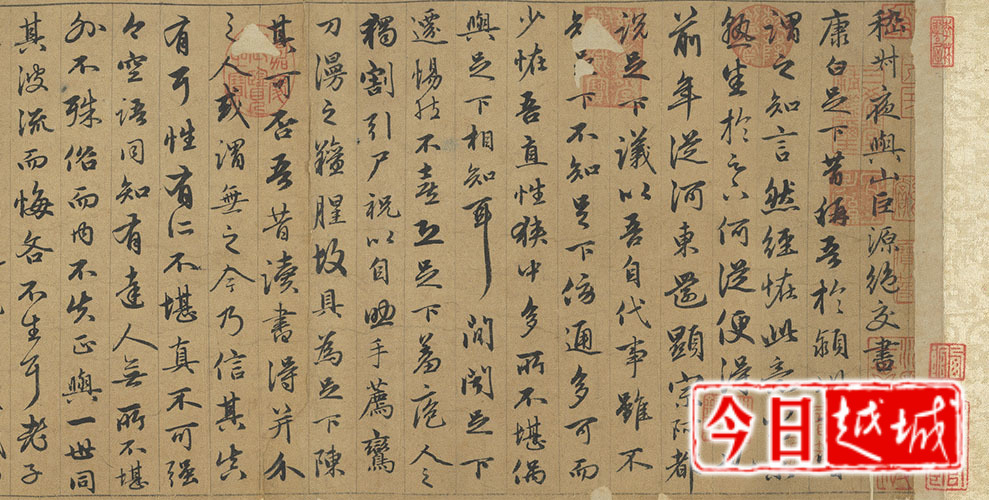 嵇叔夜與山巨源絕交書
康白足下昔稱吾於潁
謂之知言然經怪此意
熟生於足下何從便得
前年從河東還顯宗阿都
說足下議以吾自代事雖不
知下不知足下傍通多可而
少怪吾直性狹中多所不堪偶
與足下相知耳 間聞足下
遷惕然不喜恐足下羞庖人之
獨割引尸祝以自助手薦鸞
刀漫之羶腥故具為足下陳
其可否吾昔讀書得并介
之人或謂無之今乃信其真
有耳性有所不堪真不可強
今空語同知有達人無所不堪
外不殊俗而內不失正與一世同
其波流而悔吝不生耳老子
今日越城